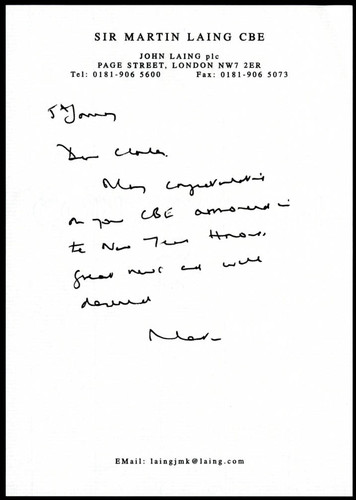 SIR MARTIN LAING CBE
JOHN LAING plc
PAGE STREET, LONDON NW7 2ER
Tel: 0181-906 5600 Fax: 0181-906 5073
5th January
Dear Charles,
Many congratulations
on your CBE announced in
the New Years Honours.
Great news and well
deserved
Martin
EMail: laingjmk@laing.com